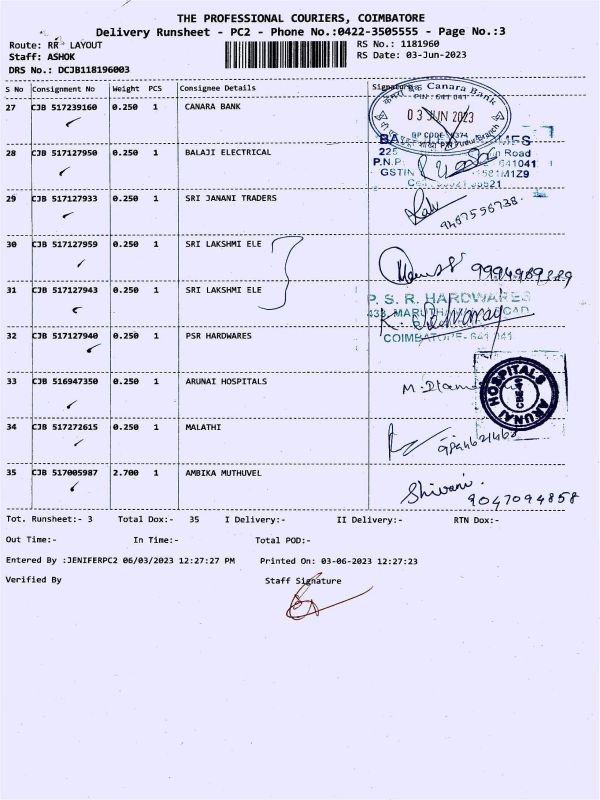 THE PROFESSIONAL COURIERS, COIMBATORE
Delivery Runsheet - PC2 - Phone No.:0422-3505555 - Page No.:3
Route: RR LAYOUT
RS No.: 1181960
Staff: ASHOK
RS Date: 03-Jun-2023
DRS No.: DCJB118196003
S No Consignment No Weight PCS Consignee Details Signature
27 CJB 517239160 0.250 1 CANARA BANK
Canara Bank
PIN: 641 041
03 JUN 2023
28 CJB 517127950 0.250 1 BALAJI ELECTRICAL
Road
P.N.P 641041
GSTIN 1581M1Z9
29 CJB 517127933 0.250 1 SRI JANANI TRADERS
9487556738
30 CJB 517127959 0.250 1 SRI LAKSHMI ELE
9994989389
31 CJB 517127943 0.250 1 SRI LAKSHMI ELE
P. S. R. HARDWARES
32 CJB 517127940 0.250 1 PSR HARDWARES
K. Selvaraj
COIMBATORE- 641 041
33 CJB 516947350 0.250 1 ARUNAI HOSPITALS
ARUNAI HOSPITALS
34 CJB 517272615 0.250 1 MALATHI
35 CJB 517005987 2.700 1 AMBIKA MUTHUVEL
Shivani.
9047094858
Tot. Runsheet:- 3 Total Dox:- 35 I Delivery:- II Delivery:- RTN Dox:-
Out Time:- In Time:- Total POD:-
Entered By :JENIFERPC2 06/03/2023 12:27:27 PM Printed On: 03-06-2023 12:27:23
Verified By Staff Signature